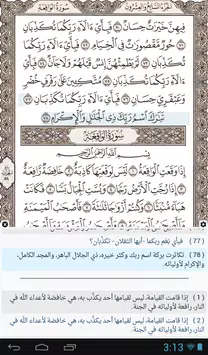 سُورَةُ الوَاقِعَةِ الجُزْءُ السَّابِعُ وَالعِشْرُونَ
فِيهِنَّ خَيْرَٰتٌ حِسَانٌ فَبِأَيِّ ءَالَآءِ رَبِّكُمَا تُكَذِّبَانِ
حُورٌ مَّقْصُورَٰتٌ فِي ٱلْخِيَامِ فَبِأَيِّ ءَالَآءِ رَبِّكُمَا تُكَذِّبَانِ
لَمْ يَطْمِثْهُنَّ إِنسٌ قَبْلَهُمْ وَلَا جَآنٌّ فَبِأَيِّ ءَالَآءِ
رَبِّكُمَا تُكَذِّبَانِ مُتَّكِـِٔينَ عَلَىٰ رَفْرَفٍ خُضْرٍ
وَعَبْقَرِيٍّ حِسَانٍ فَبِأَيِّ ءَالَآءِ رَبِّكُمَا تُكَذِّبَانِ
تَبَٰرَكَ ٱسْمُ رَبِّكَ ذِي ٱلْجَلَٰلِ وَٱلْإِكْرَامِ
سُورَةُ الوَاقِعَةِ
بِسْمِ ٱللَّهِ ٱلرَّحْمَٰنِ ٱلرَّحِيمِ
إِذَا وَقَعَتِ ٱلْوَاقِعَةُ لَيْسَ لِوَقْعَتِهَا كَاذِبَةٌ خَافِضَةٌ رَّافِعَةٌ
إِذَا رُجَّتِ ٱلْأَرْضُ رَجًّا وَبُسَّتِ ٱلْجِبَالُ بَسًّا فَكَانَتْ هَبَآءً
(77) فبأي نعم ربكما -أيها الثقلان- تكذِّبان؟
(78) تكاثرت بركة اسم ربك وكثر خيره، ذي الجلال الباهر، والمجد الكامل، والإكرام لأوليائه.
(1) إذا قامت القيامة، ليس لقيامها أحد يكذِّب به، هي خافضة لأعداء الله في النار، رافعة لأوليائه في
(2) إذا قامت القيامة، ليس لقيامها أحد يكذِّب به، هي خافضة لأعداء الله في النار، رافعة لأوليائه في
3:13